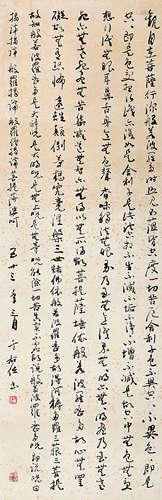 觀自在菩薩行深般若波羅蜜多時照見五蘊皆空度一切苦厄舍利子色不異空空不異色色即是
空空即是色受想行識亦復如是舍利子是諸法空相不生不滅不垢不淨不增不減是故空中無色無受
想行識無眼耳鼻舌身意無色聲香味觸法無眼界乃至無意識界無無明亦無無明盡乃至無老
死亦無老死盡無苦集滅道無智亦無得以無所得故菩提薩埵依般若波羅蜜多故心無罣
礙無罣礙故無有恐怖遠離顛倒夢想究竟涅槃三世諸佛依般若波羅蜜多故得阿耨多羅三藐三菩提
故知般若波羅蜜多是大神咒是大明咒是無上咒是無等等咒能除一切苦真實不虛故說般若波羅蜜多咒即說咒曰
揭諦揭諦般羅揭諦般羅僧揭諦菩提薩婆呵 五十三年三月 于右任書